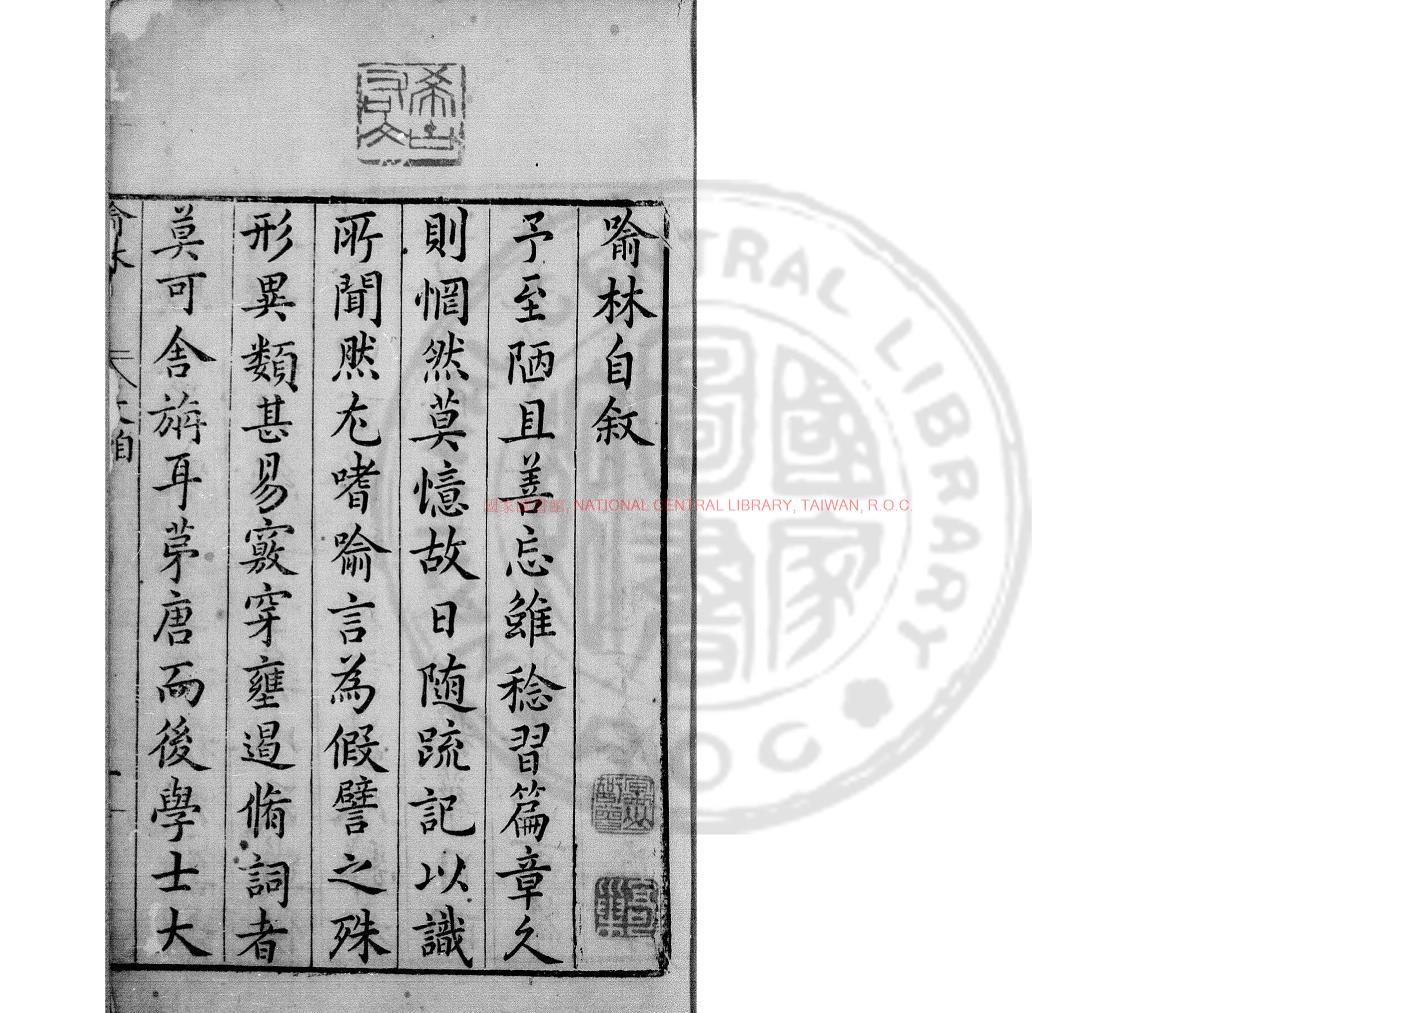 喻林自敘
予至陋且善忘雖稔習篇章久
則惘然莫憶故日隨疏記以識
所聞然尤嗜喻言為假譬之殊
形異類甚易竅穿壅遏脩詞者
莫可舍旃耳苐唐而後學士大
國家圖書館, NATIONAL CENTRAL LIBRARY, TAIWAN, R.O.C.
CENTRAL LIBRARY
R.O.C
國家圖書